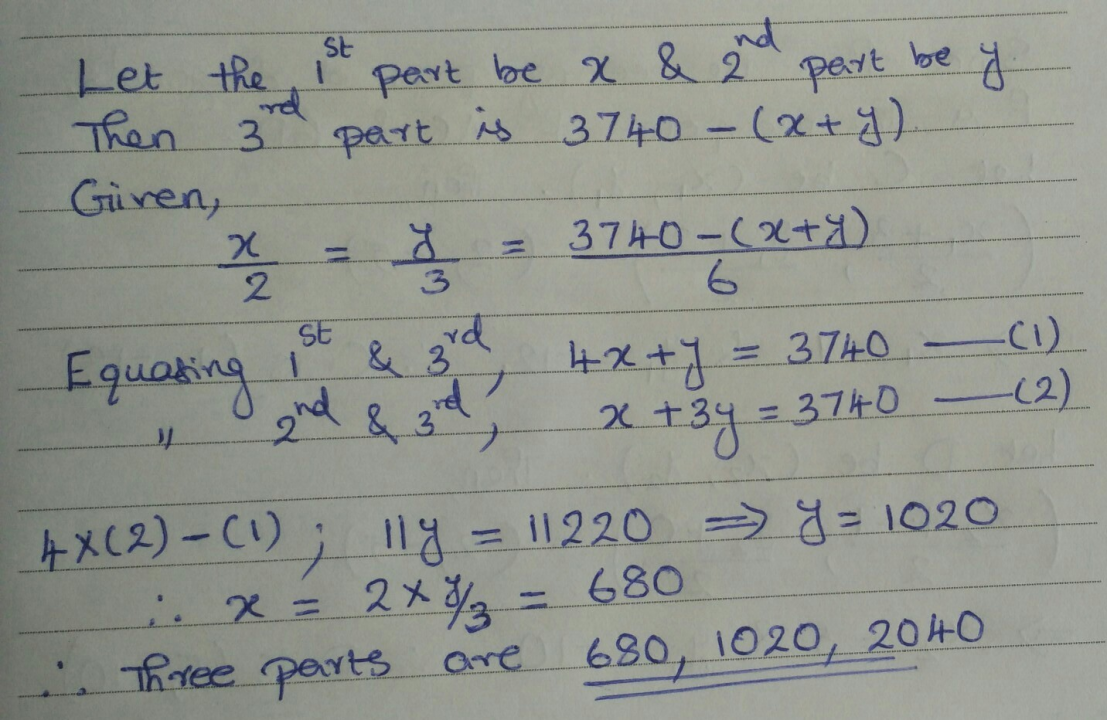 Let the 1st part be x & 2nd part be y
Then 3rd part is 3740 - (x+y)
Given,
x/2 = y/3 = 3740-(x+y)/6
Equating 1st & 3rd, 4x+y = 3740 —(1)
〃 2nd & 3rd, x+3y = 3740 —(2)
4×(2)-(1); 11y = 11220 ⟹ y = 1020
∴ x = 2×y/3 = 680
∴ Three parts are 680, 1020, 2040